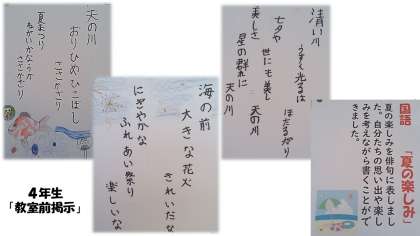 天の川
おりひめひこぼし
ささかざり
夏まつり
ねがいかなうか
ささかざり
海の前
大きな花火
きれいだな
にぎやかな
ふれあい祭り
楽しいな
清い川
うすく光るは
ほたるがり
七夕や
世にも美し
天の川
美しさ
星の群れに
天の川
国語
「夏の楽しみ」
夏の楽しみを俳句に表しまし
た。自分たちの思い出や楽し
みを考えながら書くことがで
きました。
4年生
「教室前掲示」